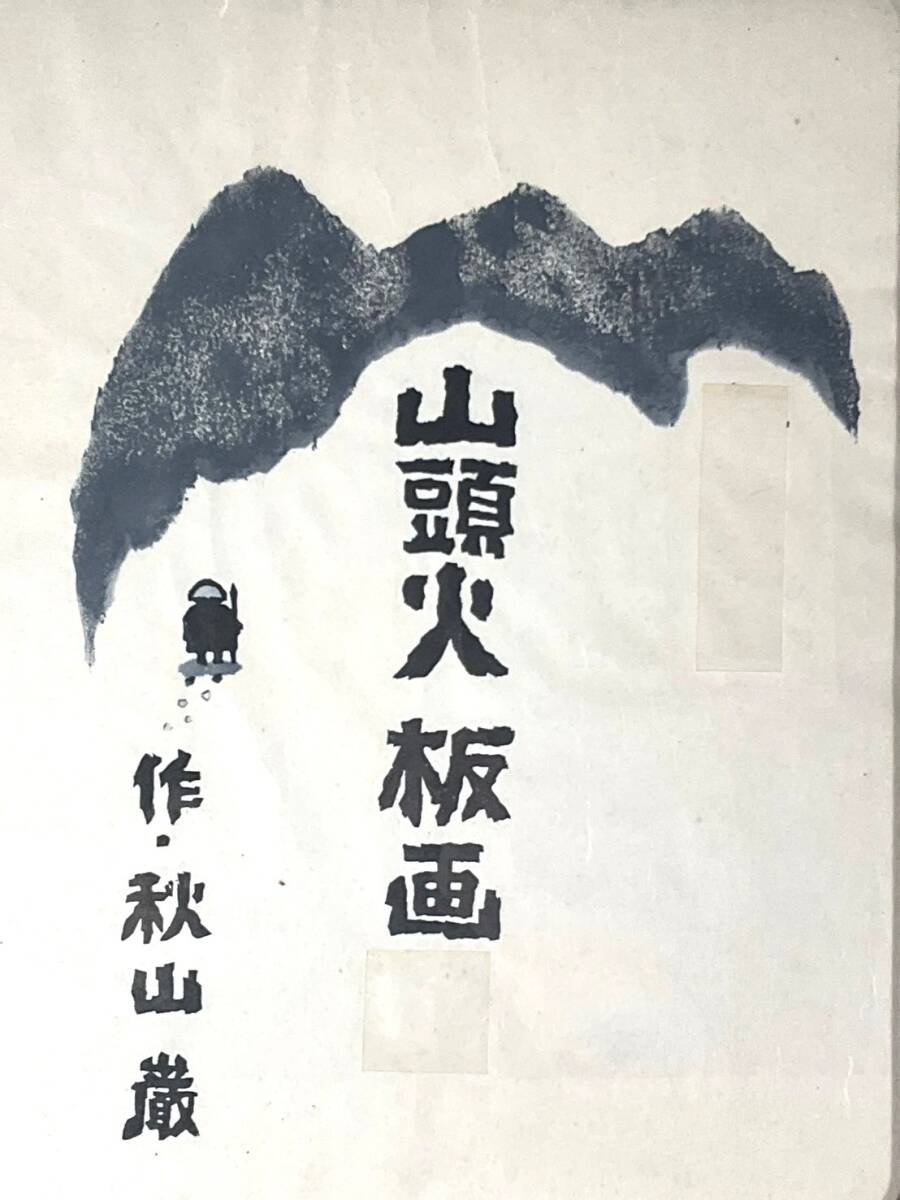 山頭火 板画
作・秋山 巌